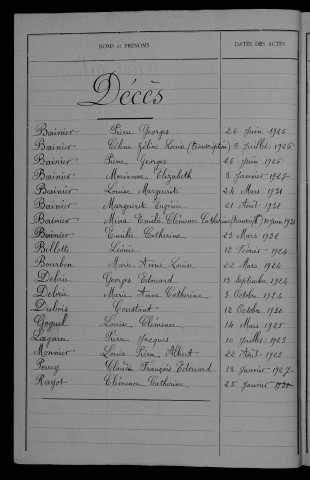 NOMS et PRÉNOMS DATES DES ACTES
Décès
Bainier Pierre Georges 26 Juin 1926
Bainier Céline Zéline Louise (transcription) 3 Juillet 1926
Bainier Pierre Georges 26 Juin 1926
Bainier Marianne Elizabeth 8 Janvier 1927
Bainier Louise Marguerite 24 Mars 1931
Bainier Marguerite Eugénie 21 Août 1931
Bainier Mina Emilie Clémence Catherine (transcript) 10 Juin 1931
Bainier Emilie Catherine 23 Mars 1932
Billotte Léonie 12 Février 1924
Bourbon Marie Anne Louise 22 Mars 1924
Debrie Georges Edouard 13 Septembre 1924
Debrie Marie Anne Catherine 3 Octobre 1924
Dubois Constant 12 Octobre 1930
Goguel Louise Clémence 14 Mars 1925
Lagarce Pierre Jacques 10 Juillet 1925
Monnier Louis Pierre Albert 22 Août 1923
Perrey Claude François Edouard 18 Janvier 1927
Rayot Clémence Catherine 25 Janvier 1931